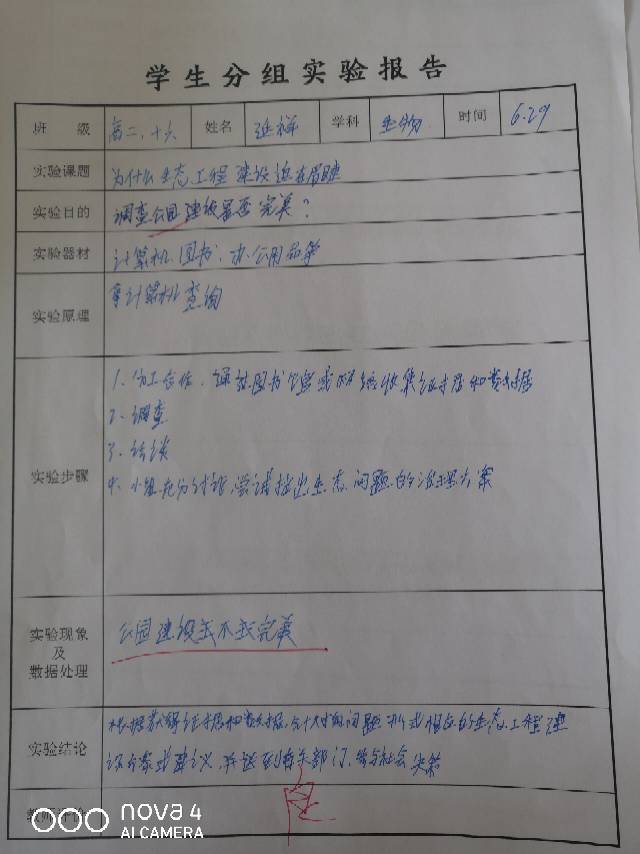 学生分组实验报告
班 级 高二、十六 姓名 延祥 学科 生物 时间 6.29
实验课题 为什么生态工程建设迫在眉睫
实验目的 调查公园建设是否完美?
实验器材 计算机、图书、办公用品等
实验原理 计算机查询
实验步骤
1、分工合作,通过图书馆或网络收集证据和数据
2、调查
3、访谈
4、小组充分讨论,尝试提出生态问题的治理方案
实验现象及数据处理 公园建设 不 完美
实验结论 根据获得证据和数据,分 问题 相应的生态工程建
设方案或建议,并送到有关部门,参与社会决策
教师评价 良
nova 4
AI CAMERA